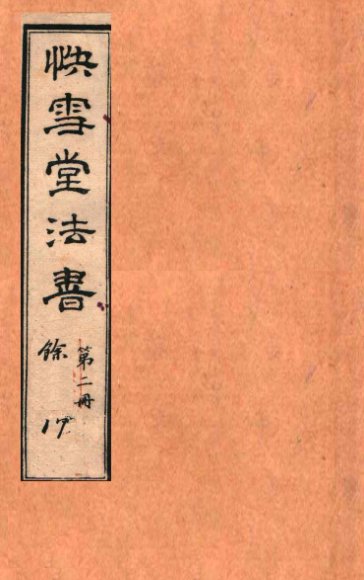 快雪堂法書
餘
第二冊
17